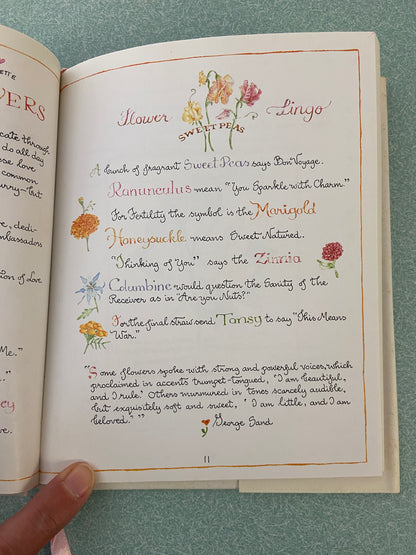 ETTE
VERS
cate through
do all day
ose love
common
urry—But
, dedi-
mbassadors
ion of Love
Me."
."
ey
ve.
Flower Lingo
SWEET PEAS
A bunch of fragrant Sweet Peas says Bon Voyage.
Ranunculus mean "You Sparkle with Charm."
For Fertility the symbol is the Marigold
Honeysuckle means Sweet Natured.
"Thinking of You" says the Zinnia
Columbine would question the Sanity of the
Receiver as in Are you Nuts?"
For the final straw send Tansy to say "This Means
War."
"Some flowers spoke with strong and powerful voices, which
proclaimed in accents trumpet-tongued, 'I am beautiful,
and I rule.' Others murmured in tones scarcely audible,
but exquisitely soft and sweet, 'I am little, and I am
beloved.'"
George Sand
11